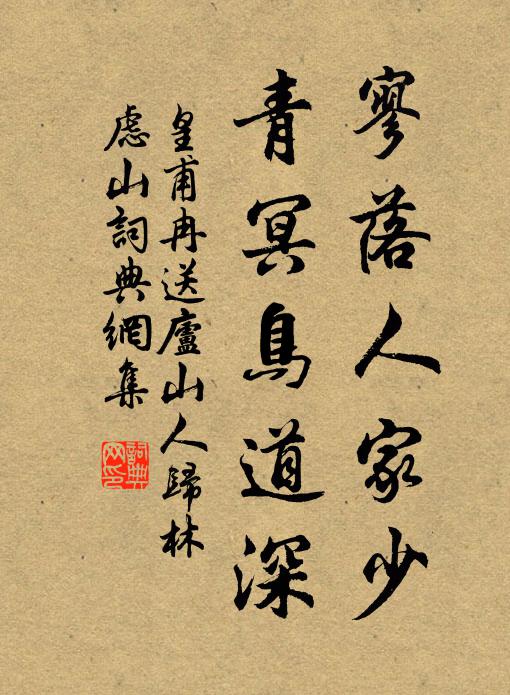 寥落人家少
青冥鳥道深
皇甫冉送廬山人歸林
慮山詞典網集
詞典
网印